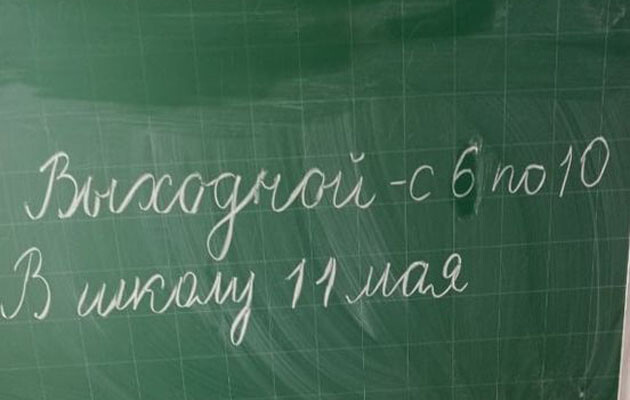 Выходной - с 6 по 10
В школу 11 мая